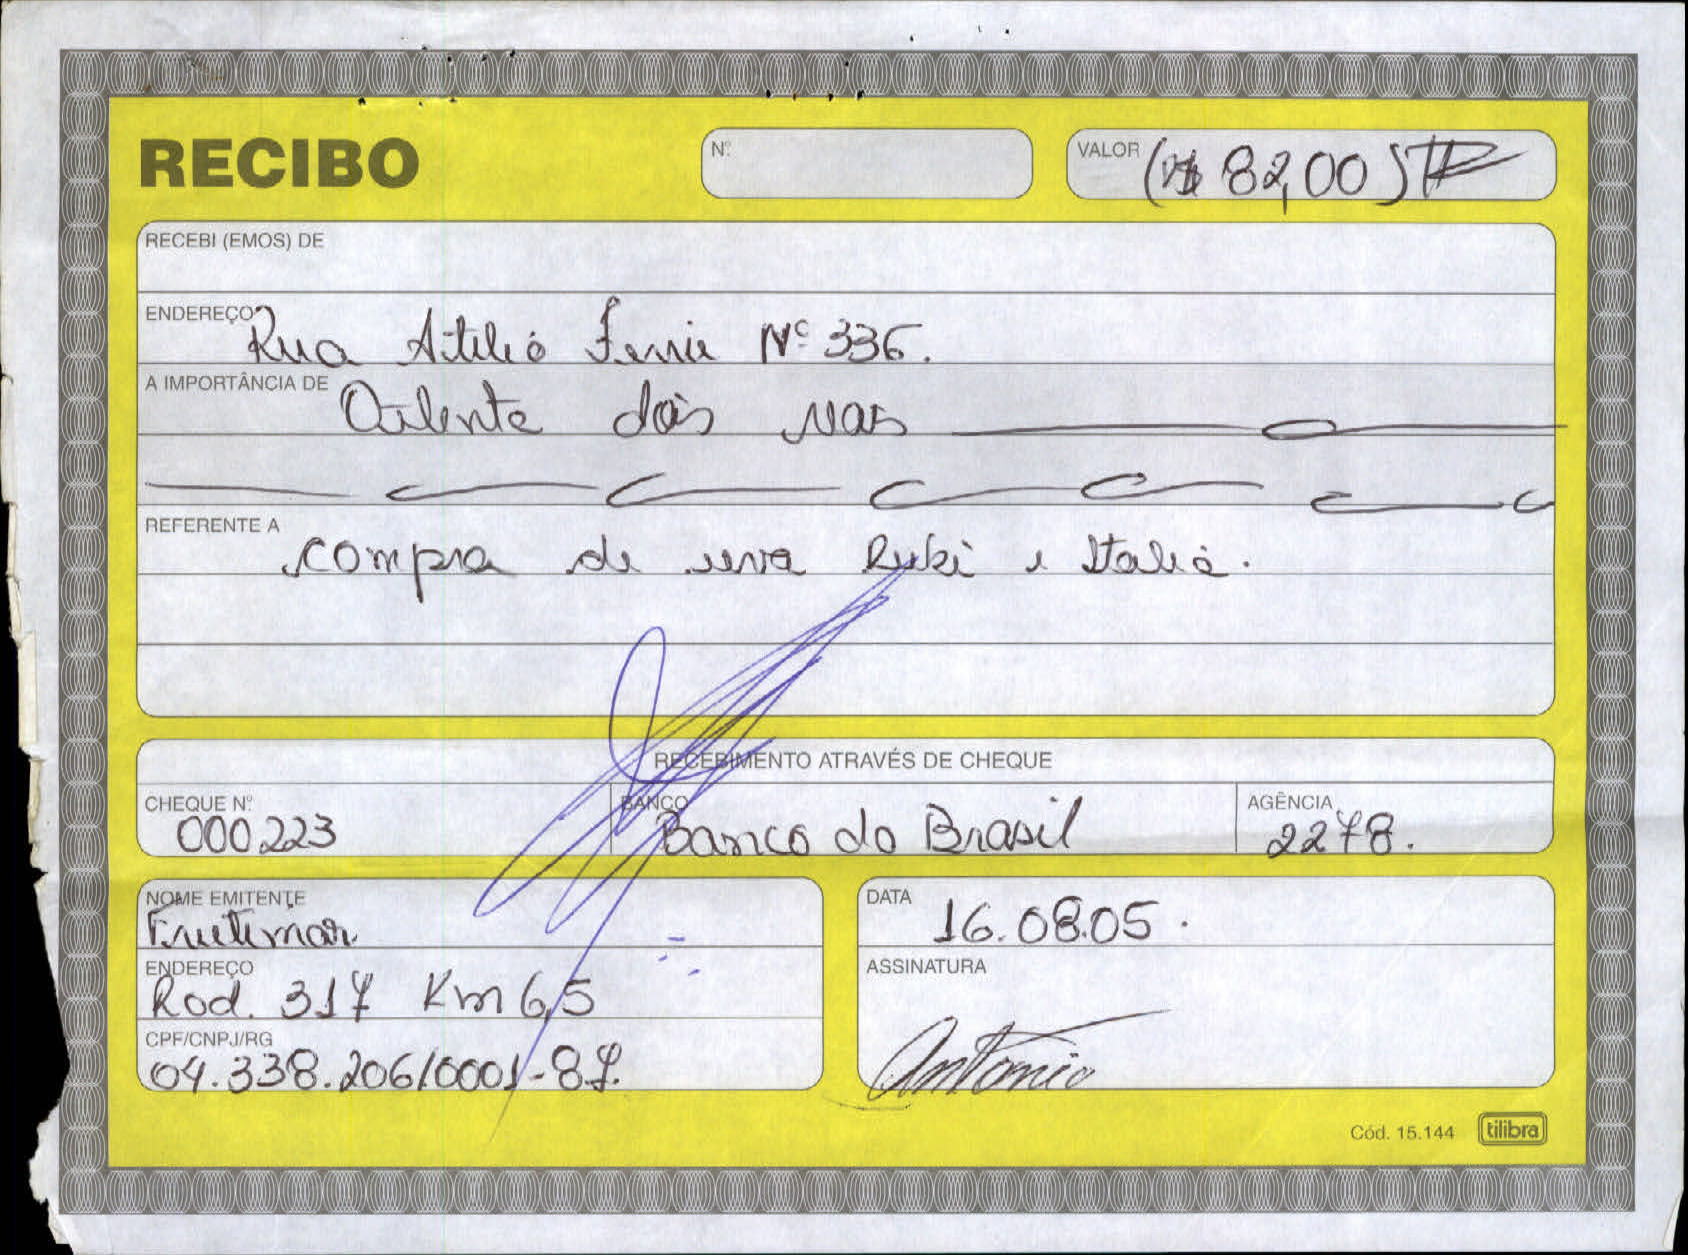 RECIBO
Nº
VALOR (R$ 82,00)
RECEBI (EMOS) DE
ENDEREÇO Rua Atilio Ferrie Nº 336.
A IMPORTÂNCIA DE Oitenta dois reais
REFERENTE A
compra de uva Rubi e Italia.
RECEBIMENTO ATRAVÉS DE CHEQUE
CHEQUE Nº 000223
BANCO Banco do Brasil
AGÊNCIA 2278.
NOME EMITENTE
Frutimar
ENDEREÇO
Rod. 317 Km 6,5
CPF/CNPJ/RG
04.338.206/0001-87.
DATA 16.08.05.
ASSINATURA
Antonio
Cód. 15.144 tilibra